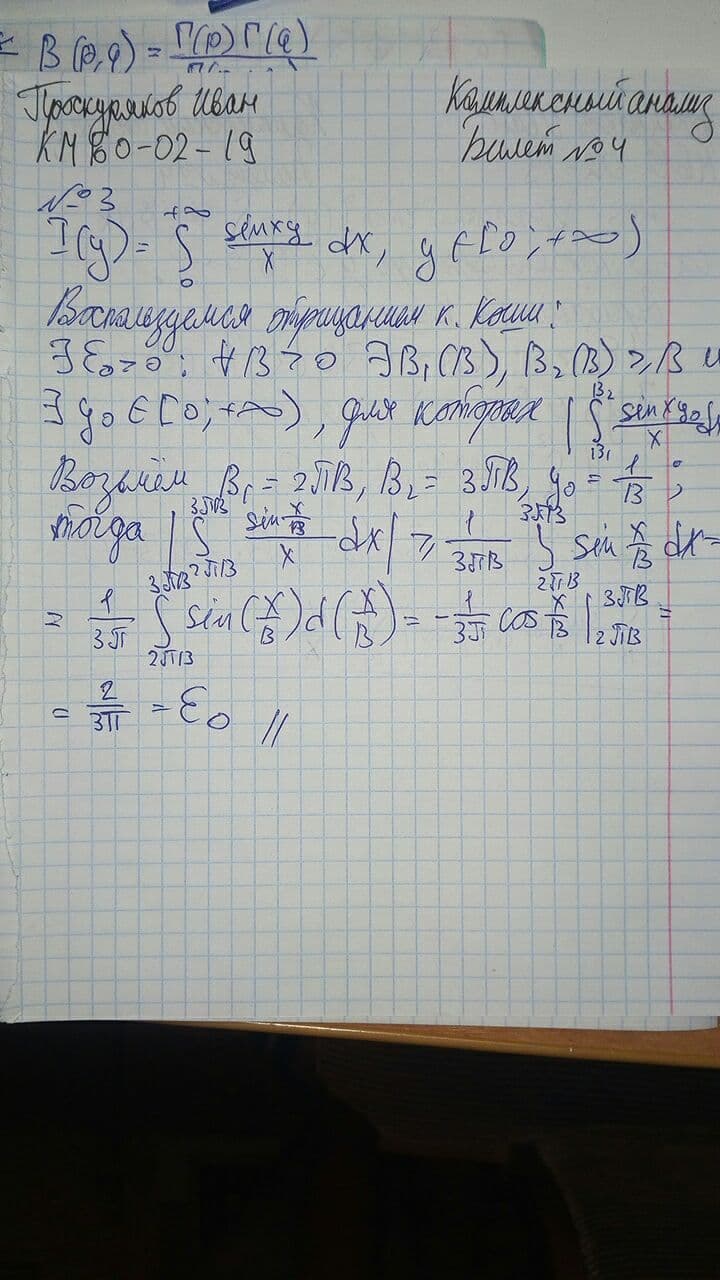 B(p,q) = Γ(p)Γ(q)
Проскуряков Иван
Комплексный анализ
КМБО-02-19
Билет №4
№3
I(y) = ∫₀^{+∞} sinxy/x dx, y ∈ [0;+∞)
Воспользуемся отрицанием к. Коши:
∃ε₀>0: ∀B>0 ∃B₁(B), B₂(B) ≥ B и
∃y₀ ∈ [0;+∞), для которых |∫_{B₁}^{B₂} sinxy₀/x d
Возьмём B₁ = 2πB, B₂ = 3πB, y₀ = 1/B;
тогда |∫_{2πB}^{3πB} sin x/B / x dx| ≥ 1/3πB ∫_{2πB}^{3πB} sin x/B dx =
= 1/3π ∫_{2πB}^{3πB} sin(x/B)d(x/B) = -1/3π cos x/B |_{2πB}^{3πB} =
= 2/3π = ε₀ //